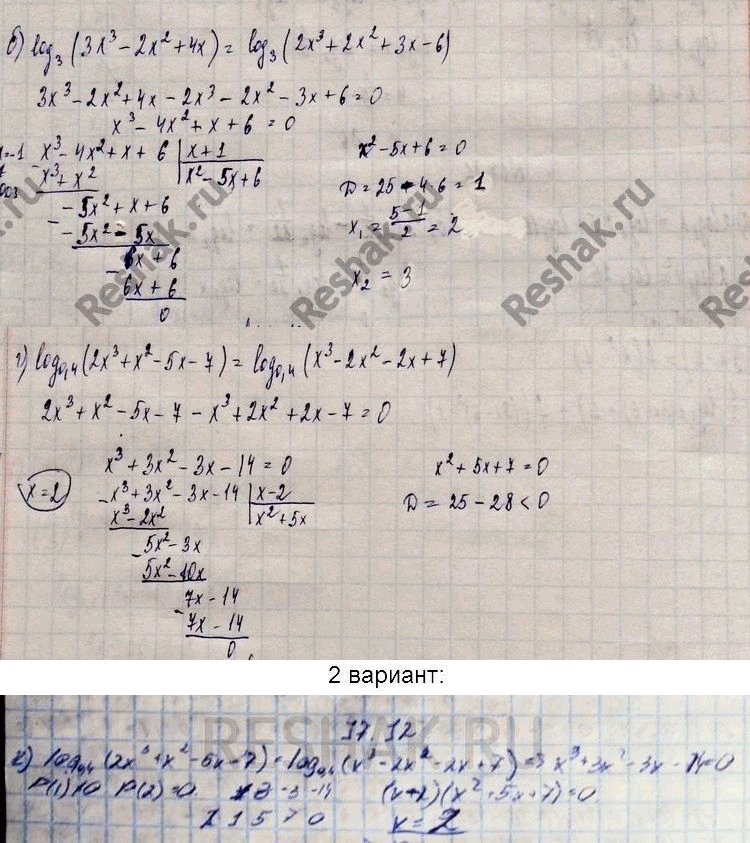 б) log₃(3x³ - 2x² + 4x) = log₃(2x³ + 2x² + 3x - 6)
3x³ - 2x² + 4x - 2x³ - 2x² - 3x + 6 = 0
x³ - 4x² + x + 6 = 0
x=-1 x³ - 4x² + x + 6 | x + 1
x³ + x² x² - 5x + 6
- 5x² + x + 6
- 5x² - 5x
6x + 6
6x + 6
0
x² - 5x + 6 = 0
D = 25 - 4·6 = 1
x₁ = (5-1)/2 = 2
x₂ = 3
Reshak.ru
Reshak.ru
Reshak.ru
г) log₀,₄(2x³ + x² - 5x - 7) = log₀,₄(x³ - 2x² - 2x + 7)
2x³ + x² - 5x - 7 - x³ + 2x² + 2x - 7 = 0
x³ + 3x² - 3x - 14 = 0
x = 2 x³ + 3x² - 3x - 14 | x - 2
x³ - 2x² x² + 5x
5x² - 3x
5x² - 10x
7x - 14
7x - 14
0
x² + 5x + 7 = 0
D = 25 - 28 < 0
2 вариант:
RESHAK.RU
17.12
г) log₀,₄(2x³ + x² - 5x - 7) = log₀,₄(x³ - 2x² - 2x + 7) => x³ + 3x² - 3x - 14 = 0
P(2) = 0 -3 -14 (x-2)(x² + 5x + 7) = 0
1 5 7 0 x = 2